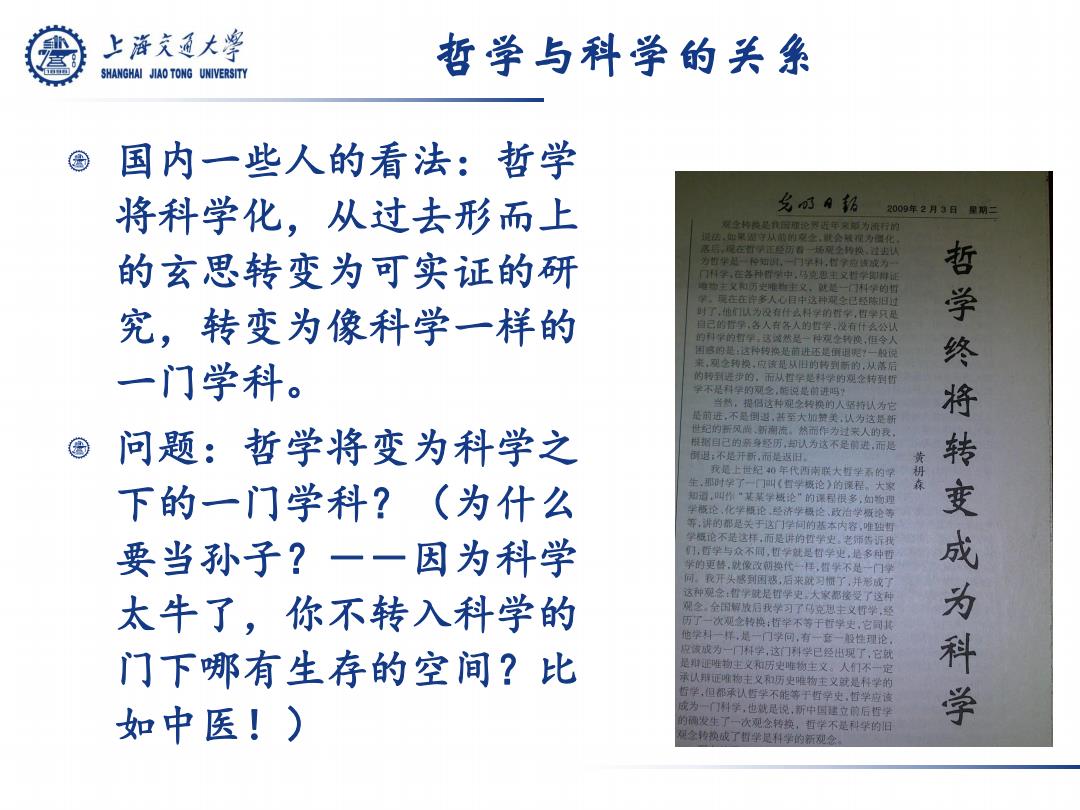 上海交通大学
SHANGHAI JIAO TONG UNIVERSITY
1896
哲学与科学的关系
国内一些人的看法：哲学
将科学化，从过去形而上
的玄思转变为可实证的研
究，转变为像科学一样的
一门学科。
问题：哲学将变为科学之
下的一门学科？（为什么
要当孙子？——因为科学
太牛了，你不转入科学的
门下哪有生存的空间？比
如中医！）
光明日报 2009年2月3日 星期二
哲学终将转变成为科学
黄枬森
观念转换是我国理论界近年来颇为流行的
说法,如果固守从前的观念,就会被视为僵化、
落后。现在哲学正经历着一场观念转换,过去认
为哲学是一种知识,一门学科,哲学应该成为一
门科学,在各种哲学中,马克思主义哲学即辩证
唯物主义和历史唯物主义，就是一门科学的哲
学。现在在许多人心目中这种观念已经陈旧过
时了,他们认为没有什么科学的哲学,哲学只是
自己的哲学,各人有各人的哲学,没有什么公认
的科学的哲学。这诚然是一种观念转换,但令人
困惑的是:这种转换是前进还是倒退呢?一般说
来,观念转换,应该是从旧的转到新的,从落后
的转到进步的，而从哲学是科学的观念转到哲
学不是科学的观念,能说是前进吗?
当然，提倡这种观念转换的人坚持认为它
是前进,不是倒退,甚至大加赞美,认为这是新
世纪的新风尚、新潮流。然而作为过来人的我,
根据自己的亲身经历,却认为这不是前进,而是
倒退;不是开新,而是返旧。
我是上世纪40年代西南联大哲学系的学
生,那时学了一门叫《哲学概论》的课程。大家
知道,叫作“某某学概论”的课程很多,如物理
学概论、化学概论、经济学概论、政治学概论等
等,讲的都是关于这门学问的基本内容,唯独哲
学概论不是这样,而是讲的哲学史。老师告诉我
们,哲学与众不同,哲学就是哲学史,是多种哲
学的更替,就像改朝换代一样,哲学不是一门学
问。我开头感到困惑,后来就习惯了,并形成了
这种观念:哲学就是哲学史。大家都接受了这种
观念。全国解放后我学习了马克思主义哲学,经
历了一次观念转换:哲学不等于哲学史,它同其
他学科一样,是一门学问,有一套一般性理论,
应该成为一门科学,这门科学已经出现了,它就
是辩证唯物主义和历史唯物主义。人们不一定
承认辩证唯物主义和历史唯物主义就是科学的
哲学,但都承认哲学不能等于哲学史,哲学应该
成为一门科学,也就是说,新中国建立前后哲学
的确发生了一次观念转换，哲学不是科学的旧
观念转换成了哲学是科学的新观念。